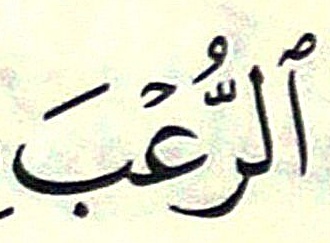 ٱلرُّعۡبَ